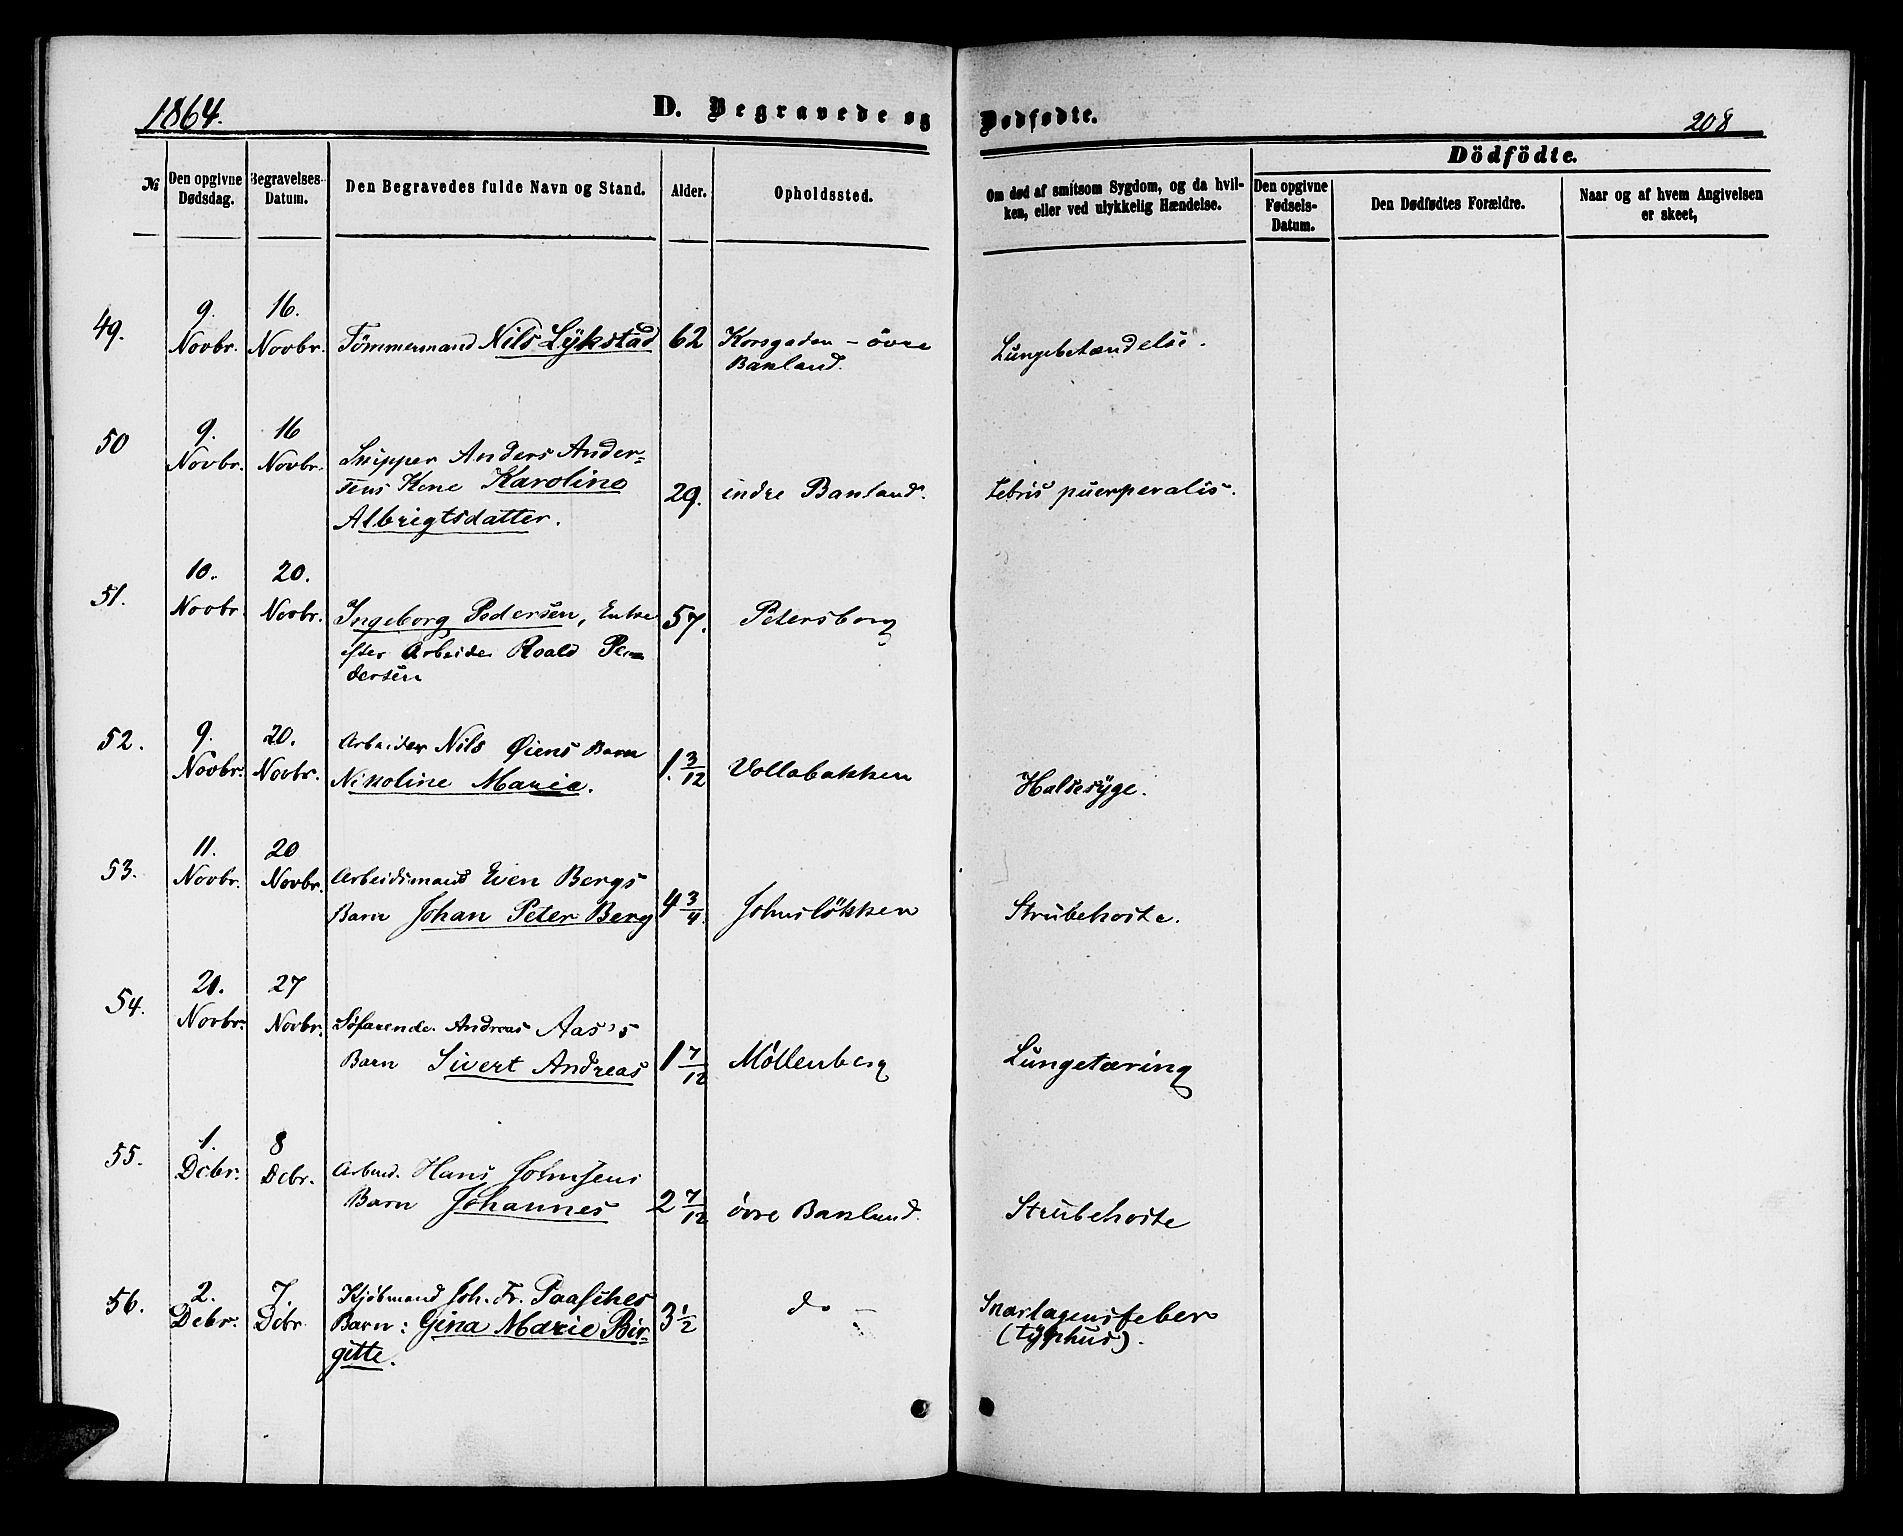 1864.
D. Begravede og Dødfødte.
208
Dödfödte.
№
Den opgivne Dødsdag.
Begravelses-Datum.
Den Begravedes fulde Navn og Stand.
Alder.
Opholdssted.
Om død af smitsom Sygdom, og da hvil-
ken, eller ved ulykkelig Hændelse.
Den opgivne Fødsels-Datum.
Den Dødfødtes Forældre.
Naar og af hvem Angivelsen
er skeet,
49. 9. Novbr. 16. Novbr. Tömmermand Nils Lÿkstad 62 Korsgaden - övre
Bakland. Lungebetændelse.
50 9. Novbr. 16 Novbr. Skipper Anders Ander-
sens Kone Karoline 29. indre Bakland. febris puerperalis.
Albrigtsdatter.
51. 10. Novbr. 20. Novbr. Ingeborg Pedersen, Enke 57. Petersborg
efter Arbeider Roald Pe-
dersen
52. 9. Novbr. 20. Novbr. Arbeider Nils Øiens Barn
Nikoline Marie. 1. 3/12 Vollabakken Halsesÿge.
53. 11. Novbr. 20 Novbr. Arbeidsmand Even Bergs
Barn Johan Peter Berg 4 3/4. Johnslökken Strubehoste.
54. 21. Novbr. 27 Novbr. Söfarende Andreas Aas's
Barn Sivert Andreas 1 7/12 Möllenberg Lungetæring
55. 1. Dcbr. 8 Dcbr. Arbeid. Hans Johnsens
Barn Johannes 2 7/12 övre Bakland. Strubehoste
56. 2. Dcbr. 7. Dcbr Kjöbmand Joh. Fr. Paasches
Barn: Gina Marie Bir- 3 1/2 do - Snarlagensfeber
gitte. (tÿphus).